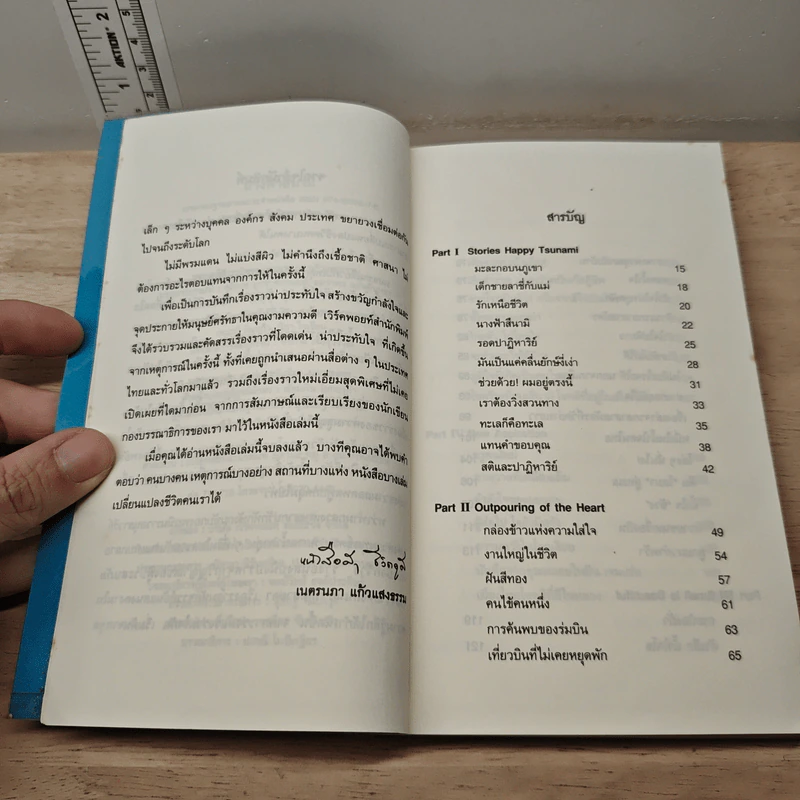 เล็ก ๆ ระหว่างบุคคล องค์กร สังคม ประเทศ ขยายวงเชื่อมต่อกัน
ไปจนถึงระดับโลก
ไม่มีพรมแดน ไม่แบ่งสีผิว ไม่คำนึงถึงเชื้อชาติ ศาสนา ไม่
ต้องการอะไรตอบแทนจากการให้ในครั้งนี้
เพื่อเป็นการบันทึกเรื่องราวน่าประทับใจ สร้างขวัญกำลังใจและ
จุดประกายให้มนุษย์ศรัทธาในคุณงามความดี เวิร์คพอยท์สำนักพิมพ์
จึงได้รวบรวมและคัดสรรเรื่องราวที่โดดเด่น น่าประทับใจ ที่เกิดขึ้น
จากเหตุการณ์ในครั้งนี้ ทั้งที่เคยถูกนำเสนอผ่านสื่อต่าง ๆ ในประเทศ
ไทยและทั่วโลกมาแล้ว รวมถึงเรื่องราวใหม่เอี่ยมสุดพิเศษที่ไม่เคย
เปิดเผยที่ใดมาก่อน จากการสัมภาษณ์และเรียบเรียงของนักเขียน
กองบรรณาธิการของเรา มาไว้ในหนังสือเล่มนี้
เมื่อคุณได้อ่านหนังสือเล่มนี้จบลงแล้ว บางทีคุณอาจได้พบคำ
ตอบว่า คนบางคน เหตุการณ์บางอย่าง สถานที่บางแห่ง หนังสือบางเล่ม
เปลี่ยนแปลงชีวิตคนเราได้
เนตรนภา แก้วแสงธรรม
สารบัญ
Part I Stories Happy Tsunami
มะละกอบนภูเขา 15
เด็กชายลาซี่กับแม่ 18
รักเหนือชีวิต 20
นางฟ้าสึนามิ 22
รอดปาฏิหาริย์ 25
มันเป็นแค่คลื่นยักษ์งี่เง่า 28
ช่วยด้วย! ผมอยู่ตรงนี้ 31
เราต้องวิ่งสวนทาง 33
ทะเลก็คือทะเล 35
แทนคำขอบคุณ 38
สติและปาฏิหาริย์ 42
Part II Outpouring of the Heart
กล่องข้าวแห่งความใส่ใจ 49
งานใหญ่ในชีวิต 54
ฝันสีทอง 57
คนไข้คนหนึ่ง 61
การค้นพบของร่มบิน 63
เที่ยวบินที่ไม่เคยหยุดพัก 65
AKTION
1
2
2
3
4
5